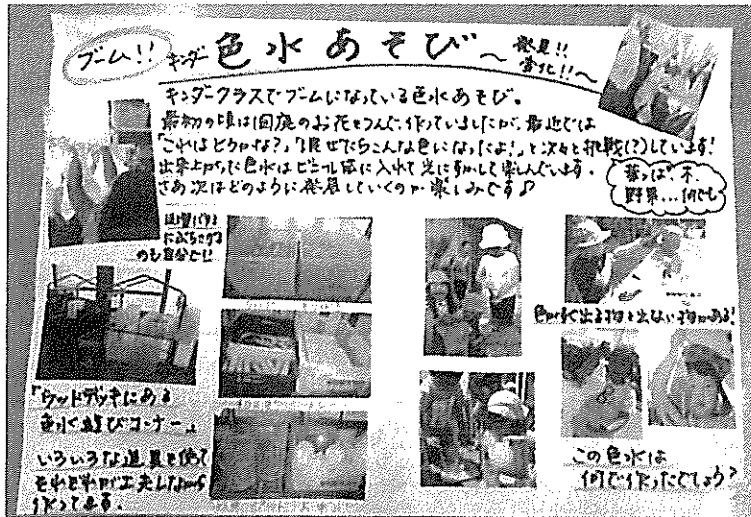 ブーム!!
キンダー 色水あそび～発見!!
キンダークラスでブームになっている色水あそび。
最初の頃は園庭のお花をつんで、作っていましたが、最近では
「これはどうかな?」「混ぜたらこんな色になったよ!」と次々と挑戦(?)しています!
出来上がった色水はビニール袋に入れて光にすかして楽しんでいます。
さあ次はどのように発展していくのか楽しみです♪
葉っぱ、木、
野菜...何でも
のも自分で!!
色がよく出る物と出ない物がある!
「ウッドデッキにある
色水遊びコーナー」
いろいろな道具を使って
それぞれが工夫しながら
作ってます。
この色水は
何で作ったでしょう?